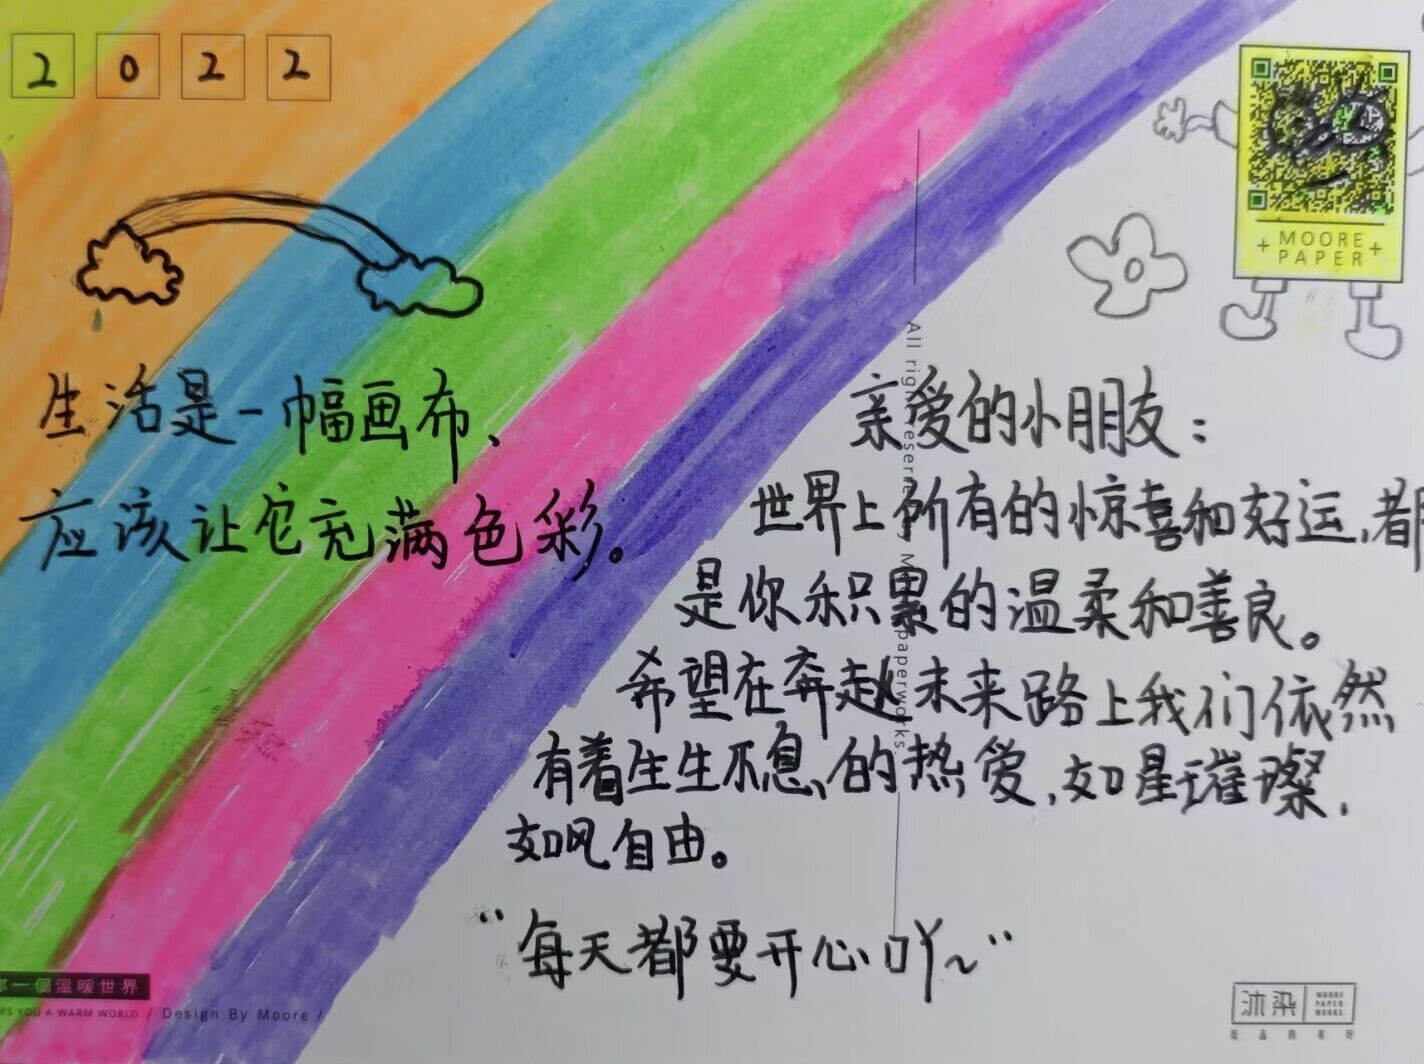 2 0 2 2
MOORE
PAPER
生活是一幅画布、
应该让它充满色彩。
亲爱的小朋友：
世界上所有的惊喜和好运,都
是你积累的温柔和善良。
希望在奔赴未来路上我们依然
有着生生不息、的热爱,如星璀璨,
如风自由。
“每天都要开心吖~”
All rights reserved Moore paperworks.
一個溫暖世界
RS YOU A WARM WORLD / Design By Moore /
沐染
MOORE
PAPER
WORKS.